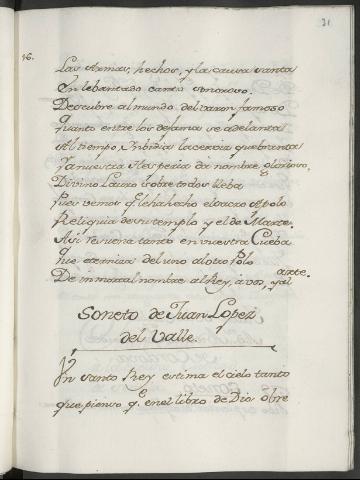 31
16.
Las Armas, hechos, y la causa santa
En lebantado canto sonoroso.
Descubre al mundo del varon famoso
quanto entre los de fama se adelanta
Al tiempo, Inbidia la cerviz quebranta
y a nuestra Hesperia da nombre glorioso,
Divino Lauro sobre todos lleba
Pues vemos q le ha hecho el oraco Apolo
Reliquia de su templo y el de Marte.
Asi resuena tanto en vuestra Cueba
que eterniza del uno al otro Polo
De inmortal nombre al Rey, a vos, y al arte.
Soneto de Juan Lopez
del Valle.
Un santo Rey estima el cielo tanto
que pienso q.e en el libro de Dios obre